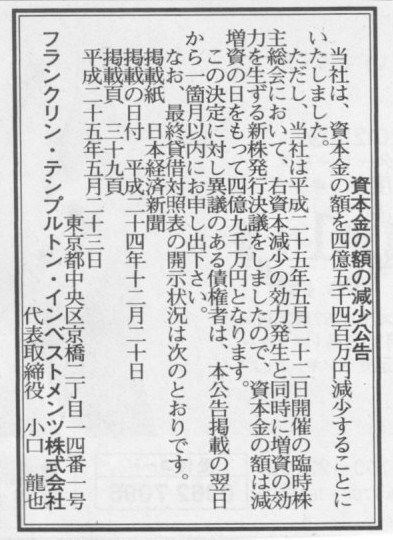 資本金の額の減少公告
当社は、資本金の額を四億五千四百万円減少することに
いたしました。
ただし、当社は平成二十五年五月二十二日開催の臨時株
主総会において、右資本減少の効力発生と同時に増資の効
力を生ずる新株発行決議をしましたので、資本金の額は減
増資の日をもって四億九千万円となります。
この決定に対し異議のある債権者は、本公告掲載の翌日
から一箇月以内にお申し出下さい。
なお、最終貸借対照表の開示状況は次のとおりです。
掲載紙　日本経済新聞
掲載の日付　平成二十四年十二月二十日
掲載頁　三十九頁
平成二十五年五月二十三日
東京都中央区京橋二丁目一四番一号
フランクリン・テンプルトン・インベストメンツ株式会社
代表取締役　小口　龍也